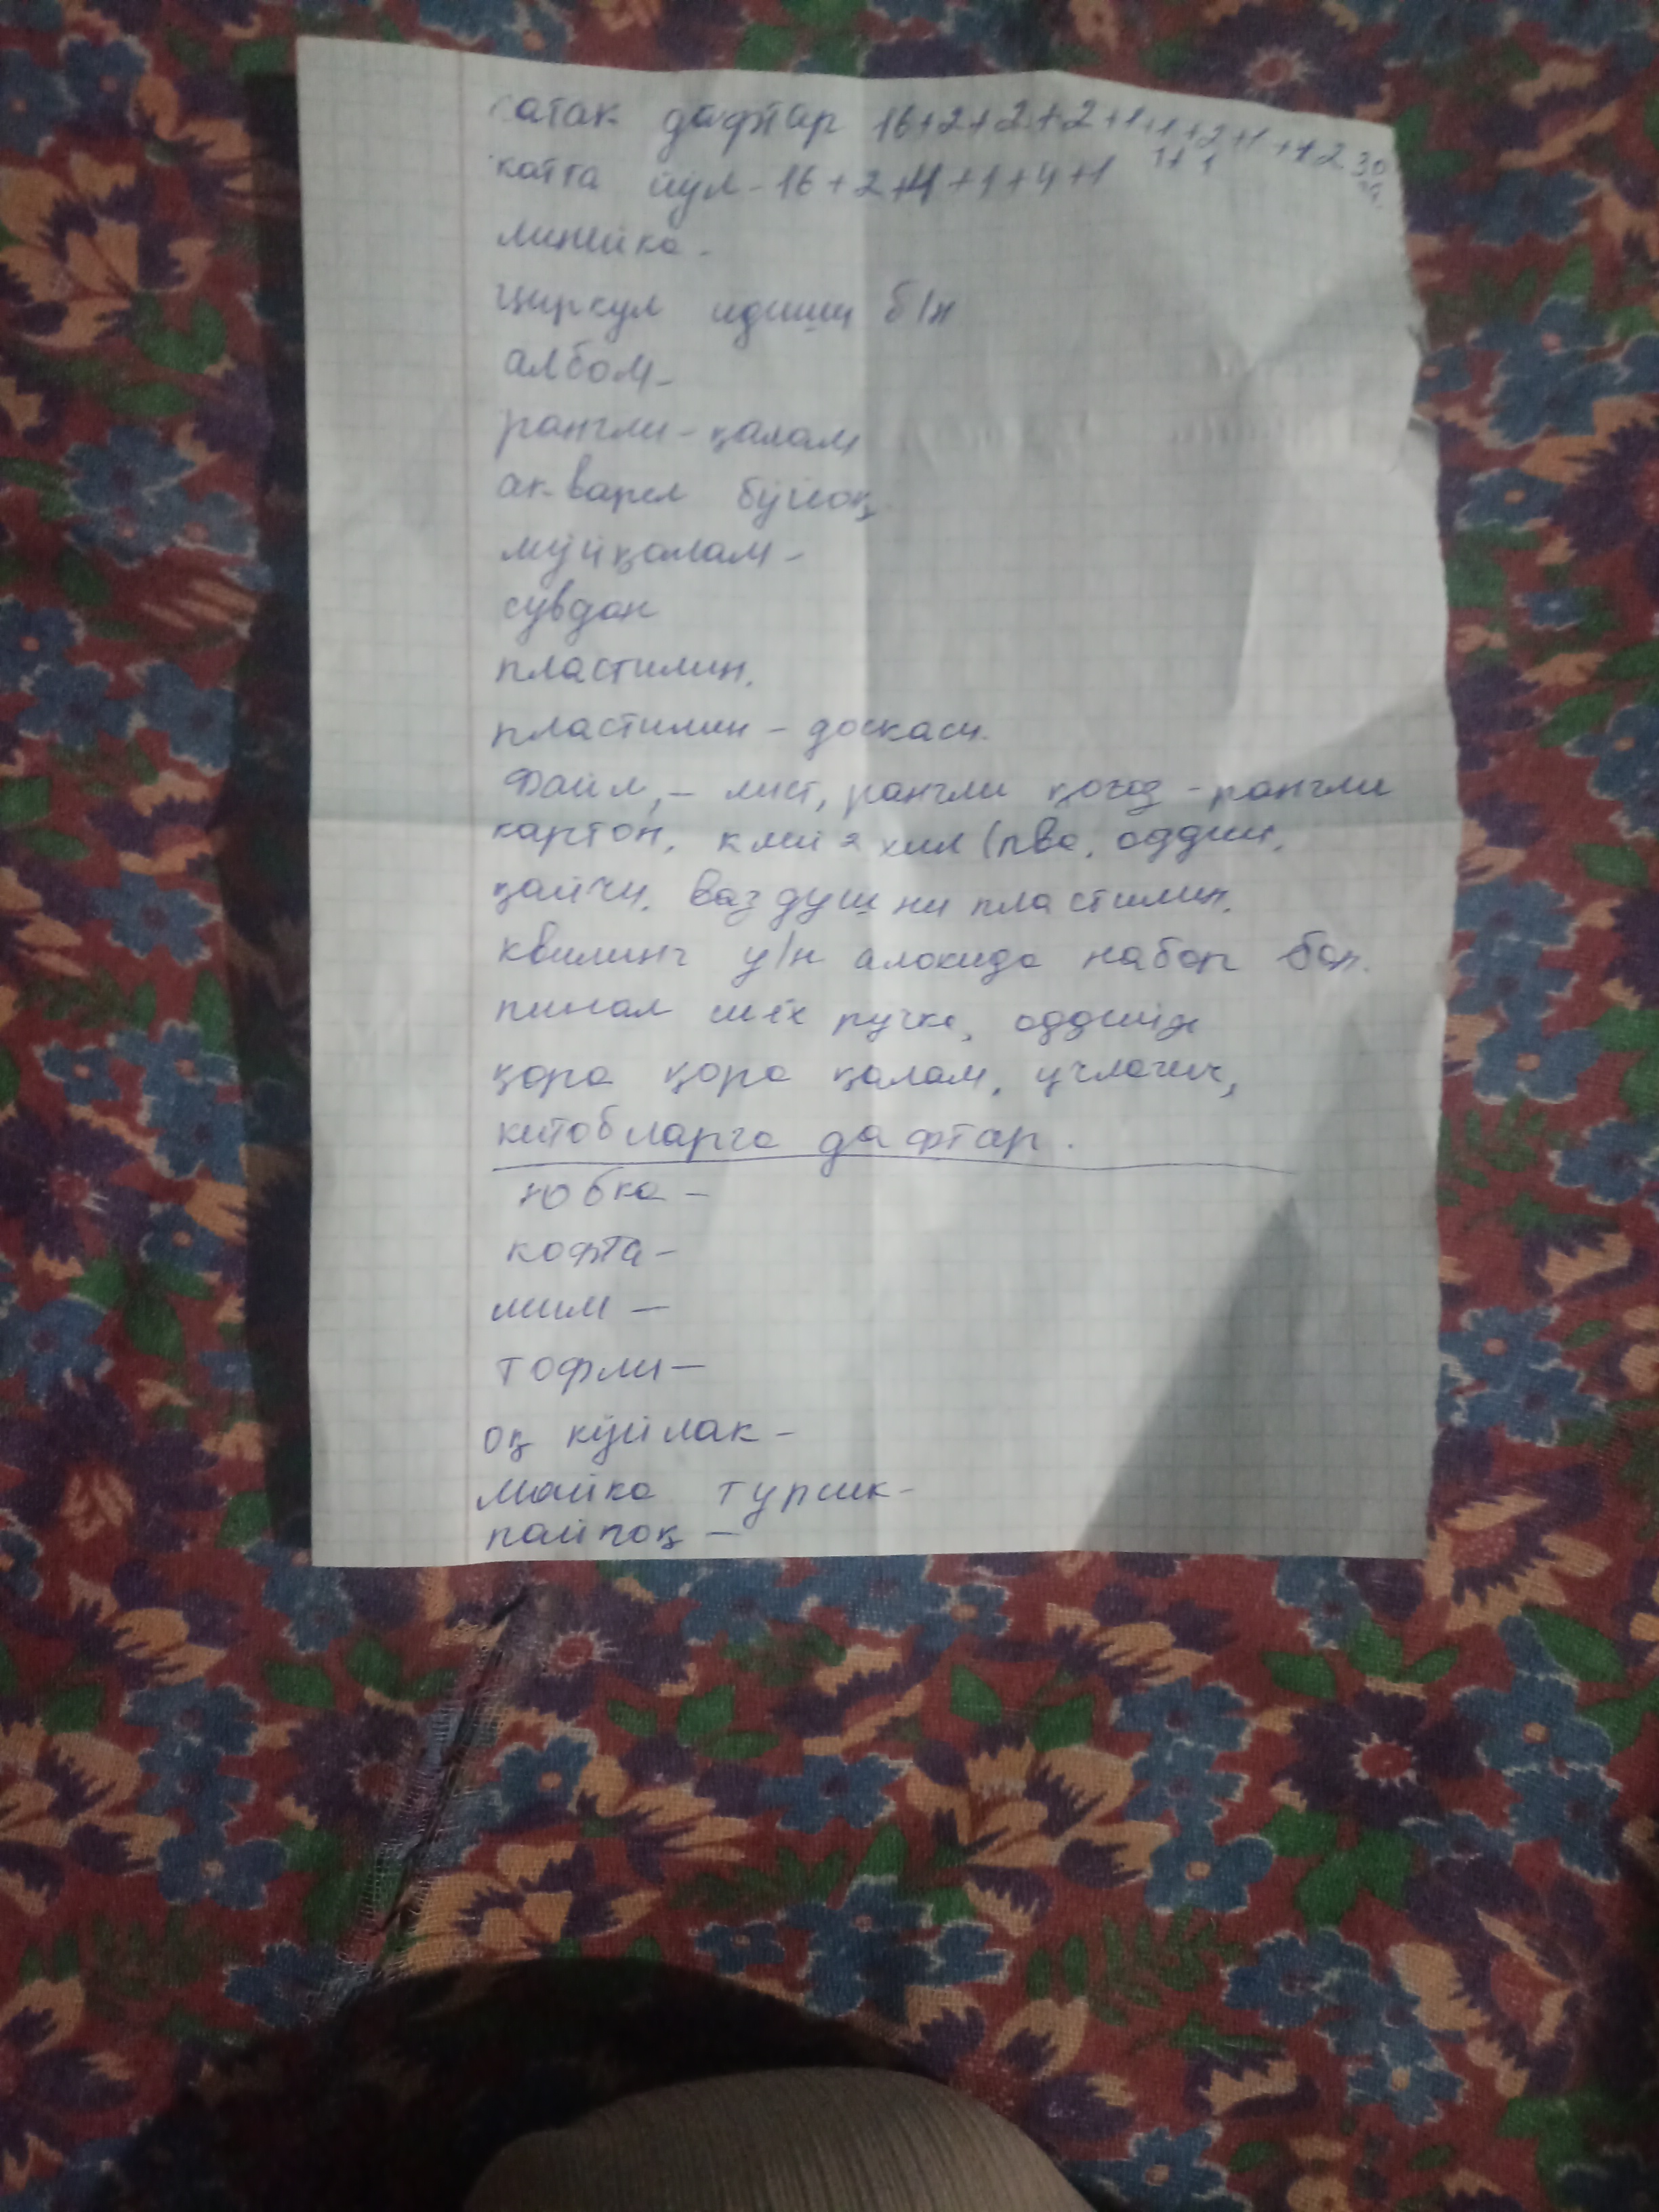 катак дафтар 16+2+2+2+1+1+2+1+1 2 30
1+1
катта йўл - 16+2+4+1+4+1
линейка -
циркул идиши б/н
албом -
рангли - қалам
акварел бўйоқ
мўйқалам -
сувдон
пластилин.
пластилин - доскаси.
Файл, - лист, рангли қоғоз - рангли
картон, клей 2 хил (пва, оддий,
қайчи, воздушни пластилин.
квилинг у/н алохида набор бор.
пинал ручка, оддий
қора қора қалам, учлагич,
китобларга дафтар.
юбка -
кофта -
шим -
тофли -
оқ кўйлак -
майка турсик -
пайпоқ -